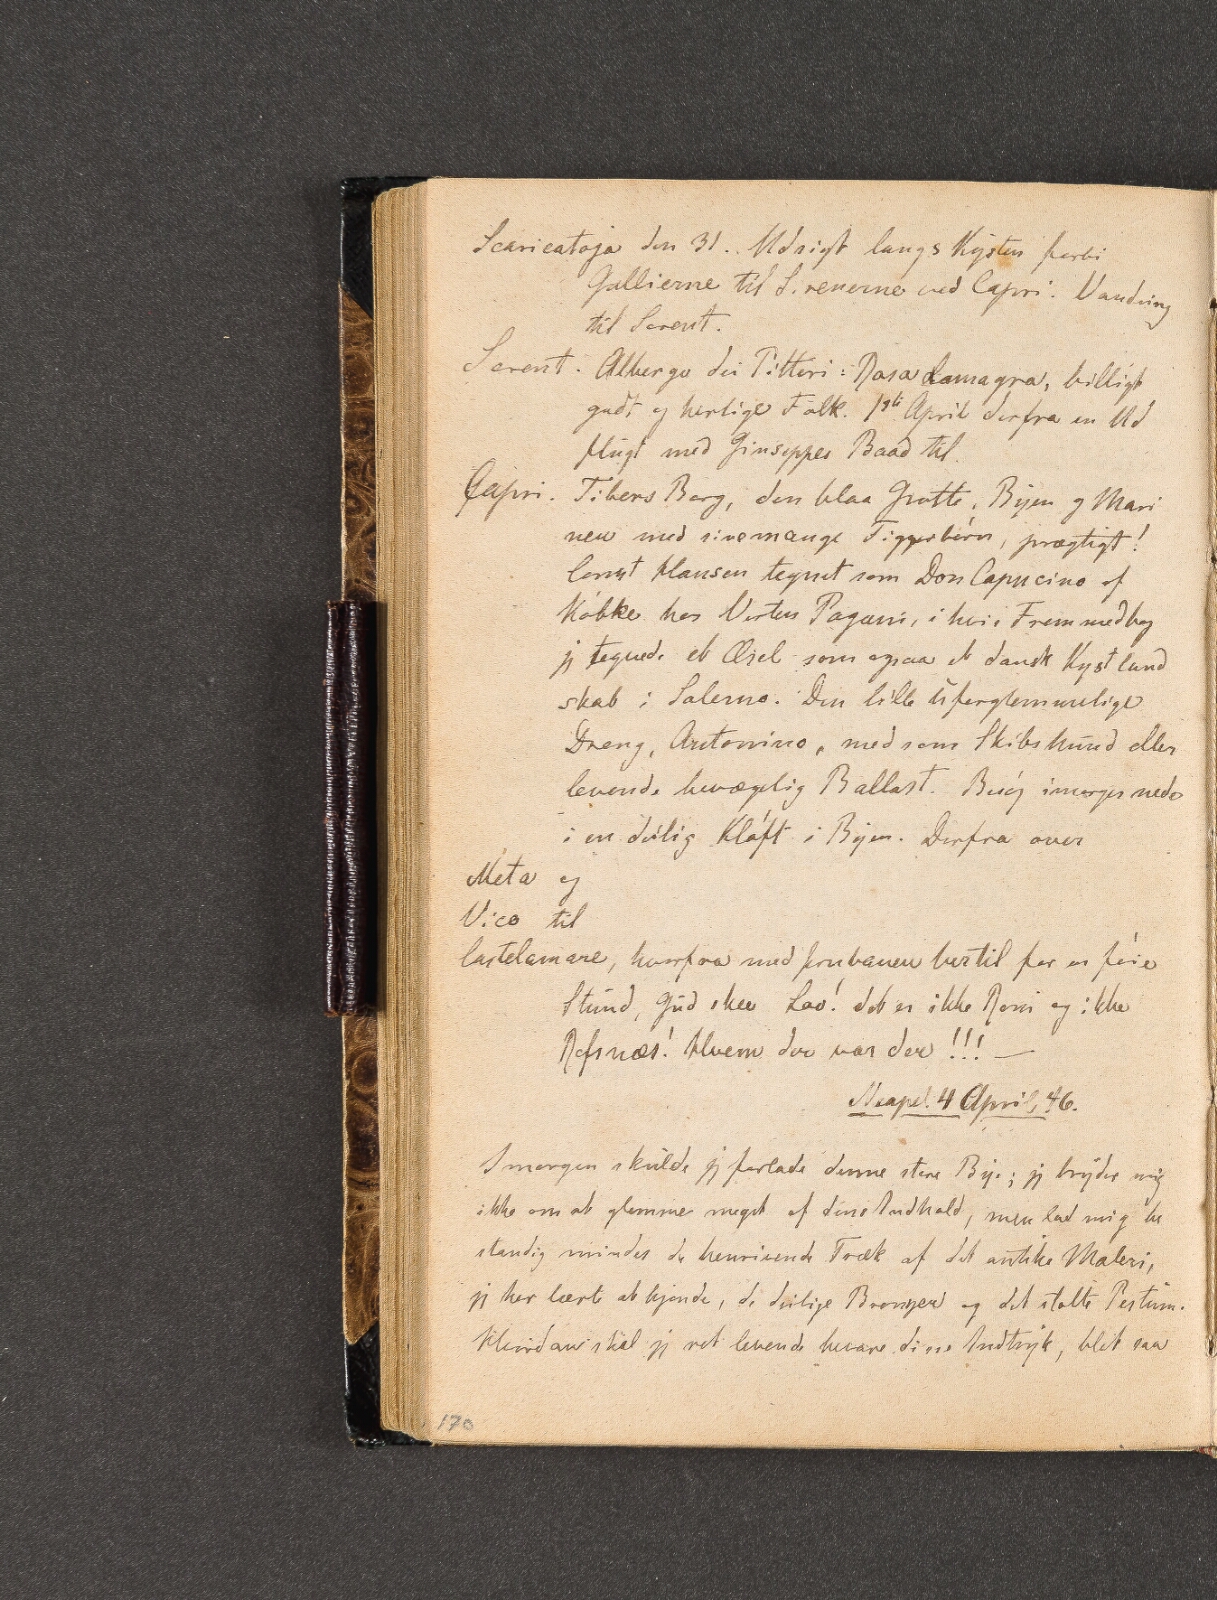 Scaricatoja den 31. Udsigt langs Kysten forbi
Gallierne til Sirenerne ved Capri. Vandring
til Sorent.
Sorent. Albergo dei Pittori: Rosa Lamagra, billigt
godt og herlige Folk. 1ste April derfra en Ud
flugt med Giuseppes Baad til
Capri. Tibers Borg, den blaa Grotte, Byen og Mari
nen med sine mange Tiggerbörn, prægtigt!
Const Hansen tegnet som Don Capucino af
Köbke hos Verten Pagani, i hvis Fremmedbog
jeg tegnede et Æsel som ogsaa et dansk Kystland
skab i Salerno. Den lille uforglemmelige
Dreng, Antonino, med som Skibshund eller
levende bevægelig Ballast. Besög imorges nede
i en deilig Klöft i Byen. Derfra over
Meta og
Vico til
Castelamare, hvorfra med Jernbanen hertil for en föie
Stund, Gud skee Lov! det er ikke Rom og ikke
Refsnæs! Hvem der var der !!! —
Neapel. 4 April, 46.
Imorgen skulde jeg forlade denne store Bye; jeg bryder mig
ikke om at glemme meget af dens Indhold, men lad mig be
standig mindes de henrivende Træk af det antike Maleri,
jeg her lærte at kjende, de deilige Bronzer og det stolte Pestum.
Hvordan skal jeg ret levende bevare disse Indtryk, blot saa
170